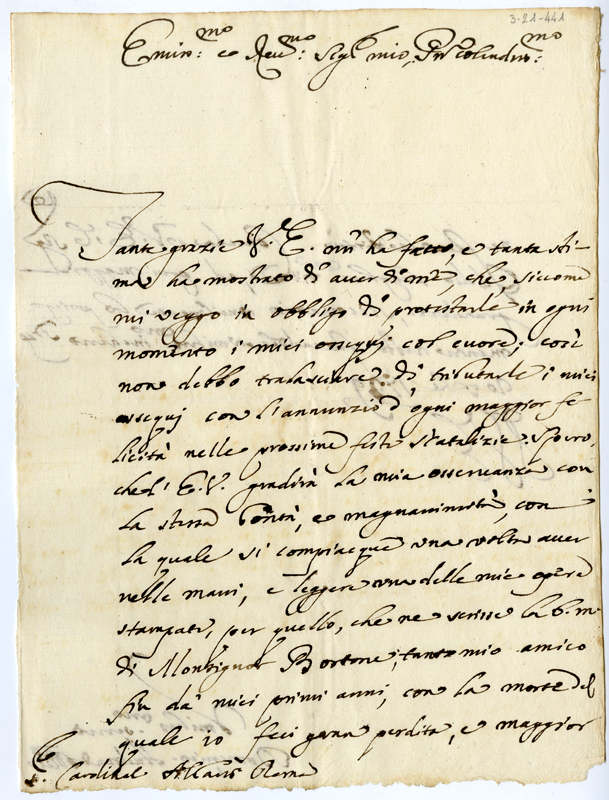 3-21-441
Emin:mo e Reu:mo Sig.r mio, Pn̄ Colendm:mo
Tante grazie V. E. mi ha fatto, e tanta sti-
ma ha mostrato di aver di me che, siccome
mi veggo in obbligo di protestarle in ogni
momento i miei ossequj col cuore; così
non debbo tralasciare di tributarle i miei
ossequj con l'annunzio d'ogni maggior fe-
licità nelle prossime feste Natalizie. Spero,
che l'E.V. gradirà la mia osservanza con
la stessa bontà, e magnanimità, con
la quale si compiacque una volta aver
nelle mani, e leggere una delle mie opere
stampate, per quello, che ne scrisse la b.m.
di Monsignor Bortone, tanto mio amico
fin da' miei primi anni, con la morte del
quale io feci gran perdita, e maggior
Cardinal Roma